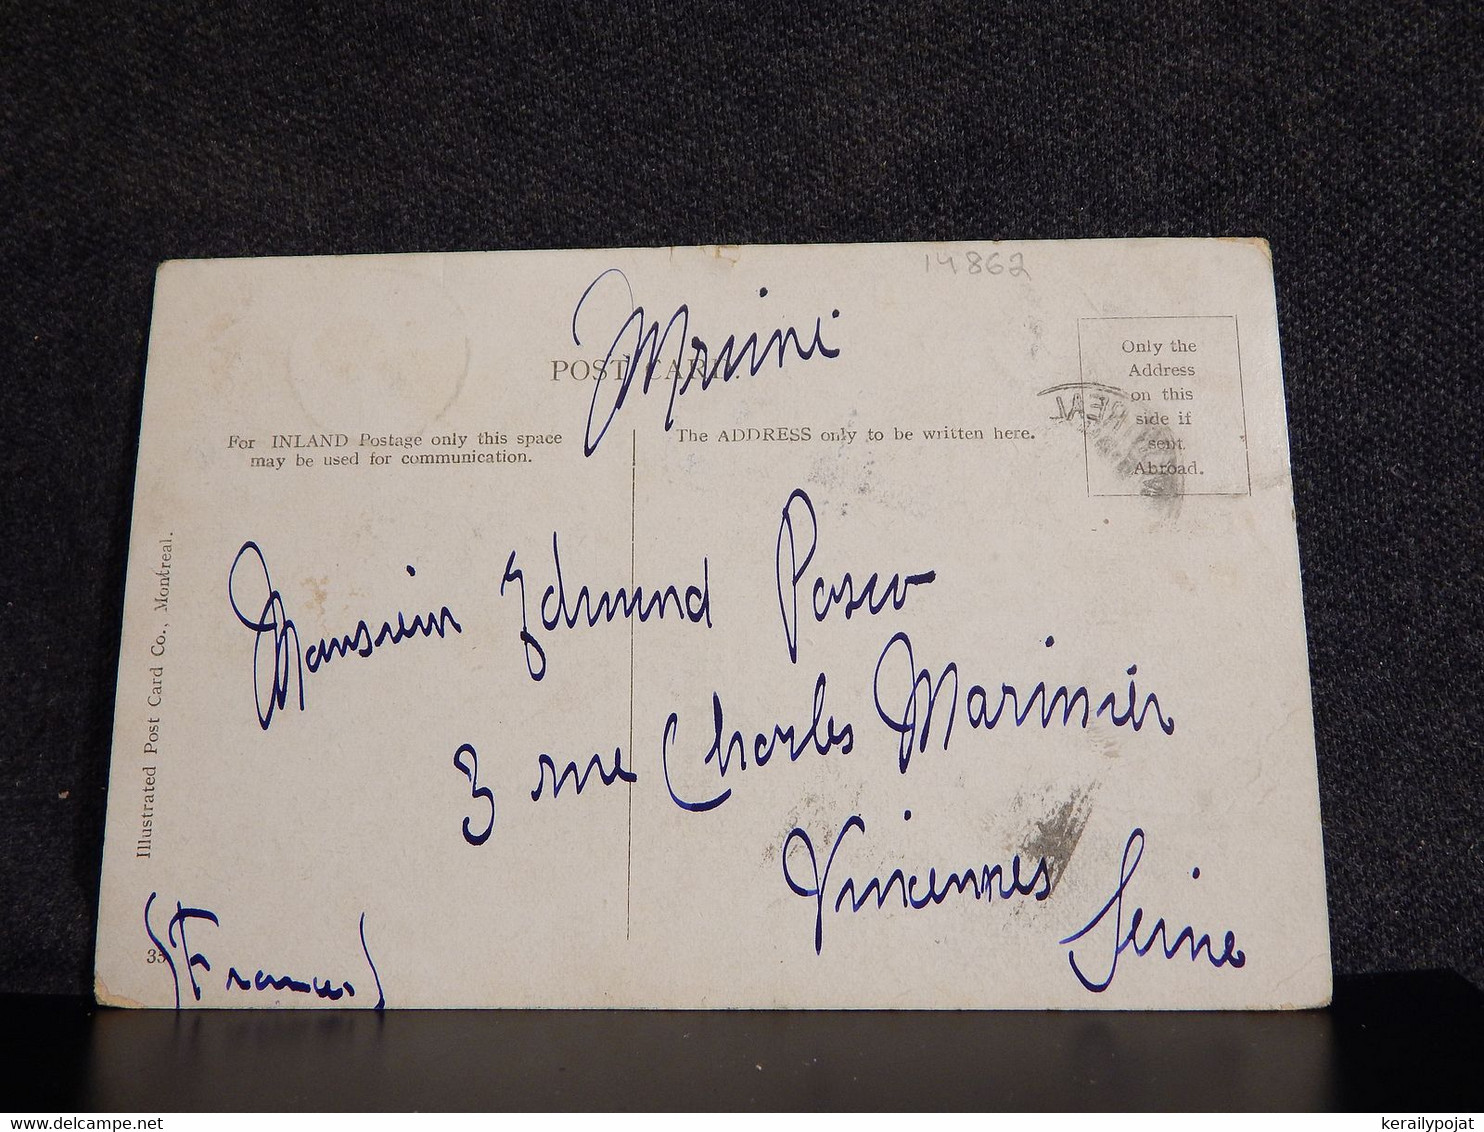 14862
POST CARD.
Only the
Address
on this
side if
sent
Abroad.
For INLAND Postage only this space
may be used for communication.
The ADDRESS only to be written here.
Monsieur Edmund Pasco
3 rue Charles Marinier
Vincennes
Seine
(France)
Illustrated Post Card Co., Montreal.
kerailypojat